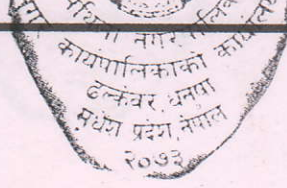 नगर
कार्यपालिकाको कार्यालय
ढल्केवर, धनुषा
मधेश प्रदेश, नेपाल
२०७३